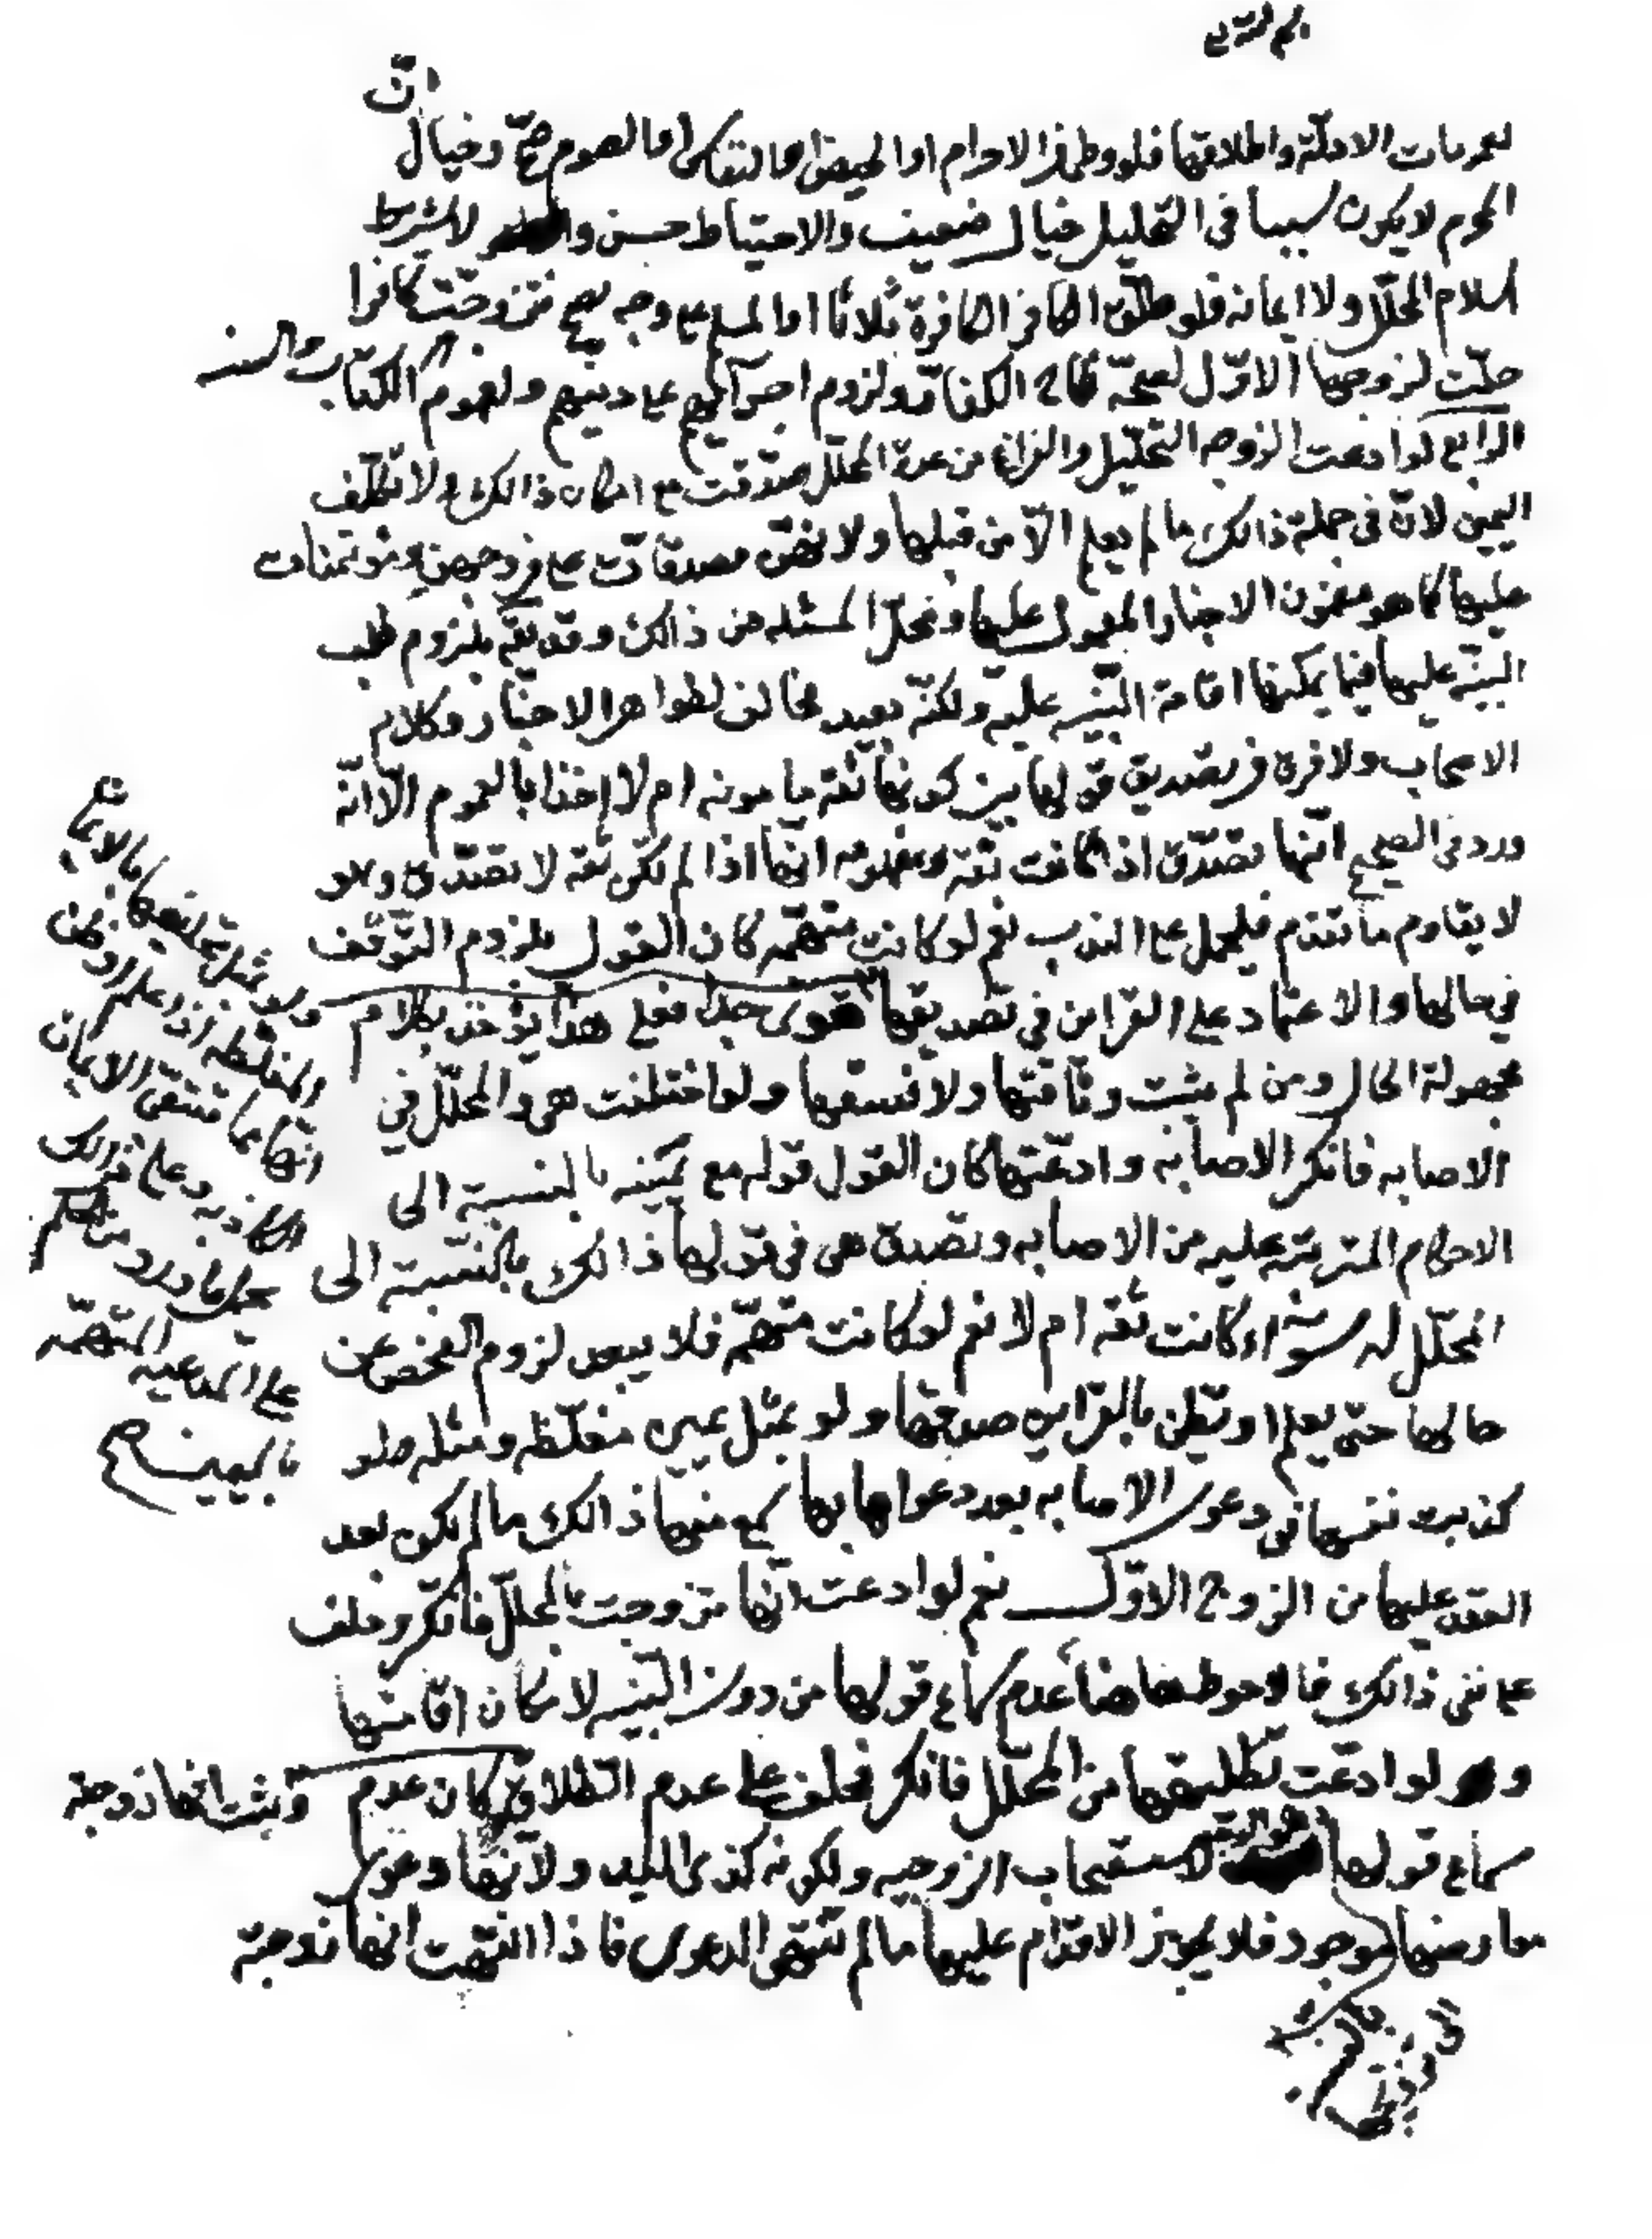 ان
لعمومات الادلة واطلاقها فلو وطأ في الاحرام او الحيض او النفاس او الصوم صح وخيال
المحرم لا يكون سببا في التحليل خيال ضعيف والاحتياط حسن و لا يشترط
اسلام المحلل ولا ايمانه فلو طلق الكافر الكافرة ثلاثا او المسلم على وجه يصح فتزوجت كافرا
حلت لزوجها الاول لصحة نكاح الكفار ولزوم اجرائهم على دينهم ولعموم الكتاب والسنه
الرابع لو ادعت الزوجه التحليل والفراغ من عدة المحلل صدقت مع امكان ذالك ولا تكلف
اليمين لان في جملة ذالك ما لم يعلم الا من قبلها ولانهن مصدقات على فروجهن ومؤتمنات
عليها كما هو مضمون الاخبار المعمول عليها ومحل المسئله من ذالك وقد يقال بلزوم طلب
البينه عليها فيما يمكنها اقامة البينه عليه ولكنه بعيد مخالف لظواهر الاخبار وكلام
الاصحاب ولا فرق في تصديق قولها بين كونها ثقه مامونه ام لا اخذا بالعموم الا انه
ورد في الصحيح انها تصدق اذا كانت ثقه ومفهومه انها اذا لم تكن ثقه لا تصدق وهو
لا يقاوم ما تقدم فليحمل على الندب نعم لو كانت متهمه كان القول بلزوم التوقف
في حالها والاعتماد على القراين في تصديقها قوى جدا فعلى هذا يؤخذ بكلام
مجهولة الحال ومن لم يثبت وثاقتها ولا فسقها ولو اختلفت هى والمحلل في
الاصابه فانكر الاصابه وادعتها كان القول قوله مع يمينه بالنسبة الى
الاحكام المترتبه عليه من الاصابه وتصدق هى في قولها ذالك بالنسبة الى
المحلل له سواء كانت ثقه ام لا نعم لو كانت متهمه فلا يبعد لزوم الفحص عن
حالها حتى يعلم او يظن بالقراين صدقها ولو بمثل يمين مغلظه ومثله ما لو
كذبت نفسها في دعوى الاصابه بعد دعواها بها سمع منها ذالك ما لم يكن بعد
العقد عليها من الزوج الاول نعم لو ادعت انها تزوجت بالمحلل فانكر وحلف
على نفى ذالك فالاحوط هاهنا عدم سماع قولها من دون البينه لامكان اقامتها
و لو ادعت تطليقها من المحلل فانكر فحلف على عدم الطلاق كان عدم
سماع قولها لاستصحاب الزوجيه ولكونه كذى اليد ولانها دعوى
معارضها موجود فلا يجوز الاقدام عليها ما لم تنتهى الدعوى فاذا انتهت انها زوجته
ولو بمثل تحليفها بالايمان
المغلظه اذا علم او ظن
انها مما تتقى الايمان
الكاذبه وعلى ذالك
يحمل ما ورد من الحكم
على المدعيه المتهمه
باليمين صح
وثبت انها زوجته